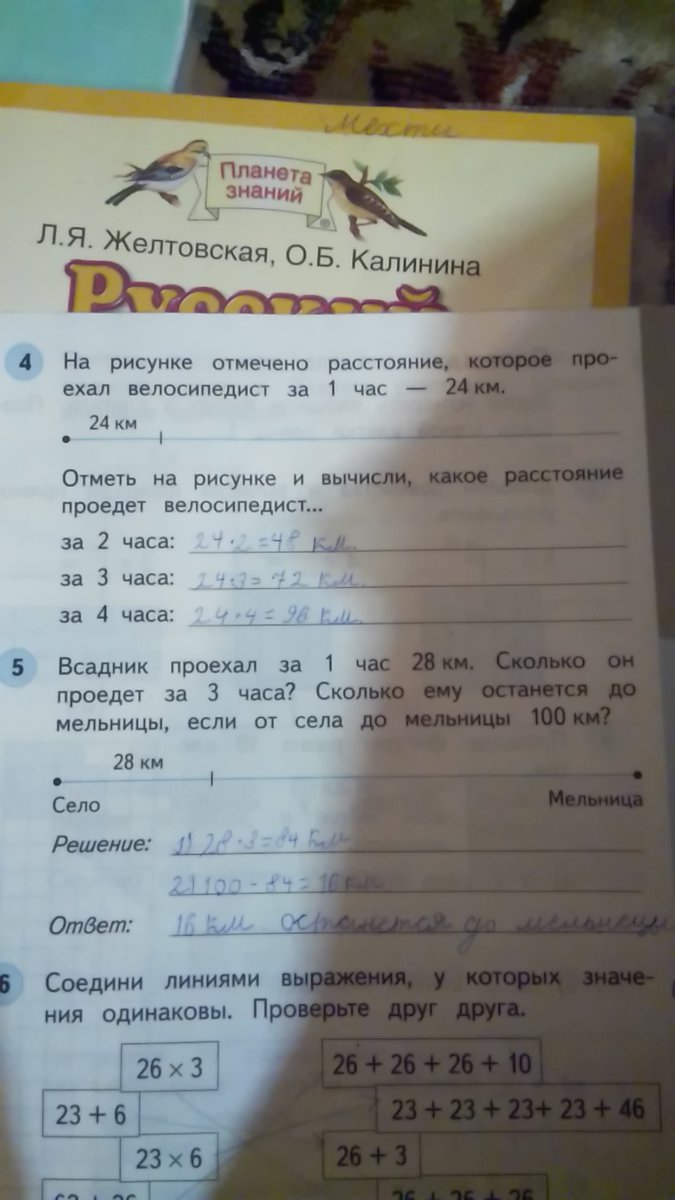 Мехти
Планета
знаний
Л.Я. Желтовская, О.Б. Калинина
Русский
4 На рисунке отмечено расстояние, которое про-
ехал велосипедист за 1 час — 24 км.
24 км
Отметь на рисунке и вычисли, какое расстояние
проедет велосипедист...
за 2 часа: 24·2=48 км.
за 3 часа: 24·3=72 км.
за 4 часа: 24·4=96 км.
5 Всадник проехал за 1 час 28 км. Сколько он
проедет за 3 часа? Сколько ему останется до
мельницы, если от села до мельницы 100 км?
28 км
Село Мельница
Решение: 1) 28·3=84 км
2) 100-84=16 км
Ответ: 16 км. останется до мельницы
6 Соедини линиями выражения, у которых значе-
ния одинаковы. Проверьте друг друга.
26 × 3 26 + 26 + 26 + 10
23 + 6 23 + 23 + 23+ 23 + 46
23 × 6 26 + 3
26 + 26 + 26